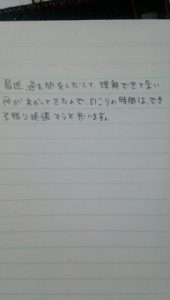 最近 過去問をしだして、理解できてない
所が分かってきたので、のこりの時間は、でき
る限り頑張ろうと思います。